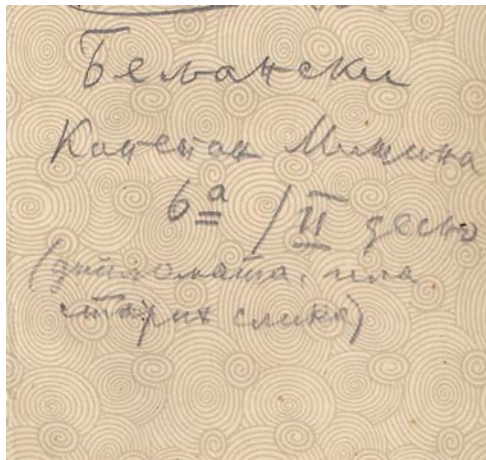 Бељански
Капетан Мишина
6ª / II десно
(дипломата, има
старих слика)